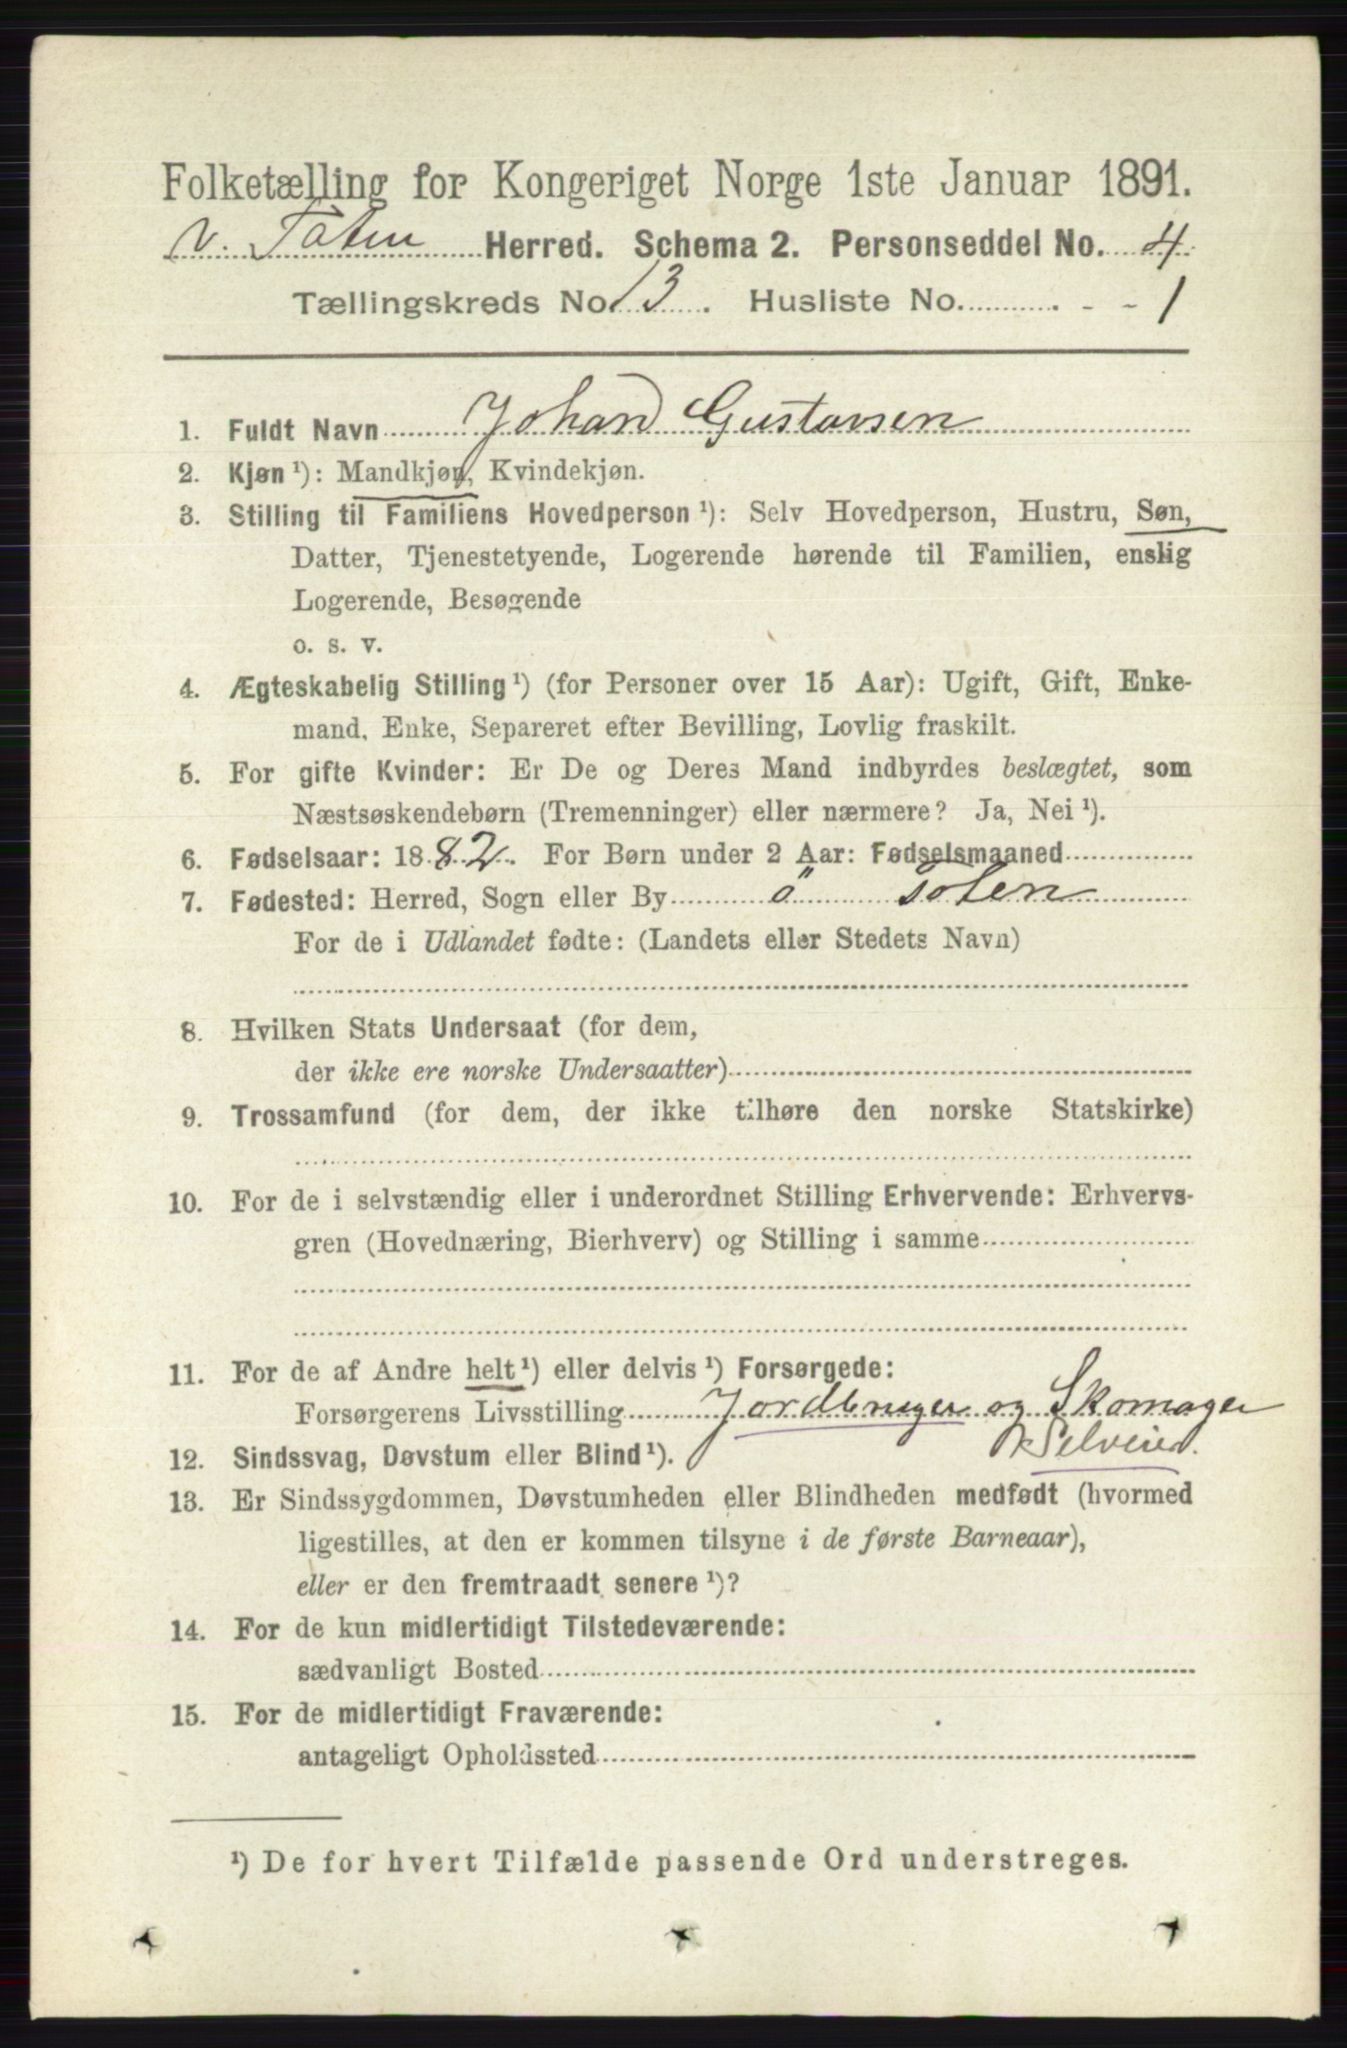 Folketælling for Kongeriget Norge 1ste Januar 1891.
V. Toten Herred. Schema 2. Personseddel No. 4
Tællingskreds No. 13. Husliste No. 1
1. Fuldt Navn Johan Gustavsen
2. Kjøn ¹): Mandkjøn, Kvindekjøn.
3. Stilling til Familiens Hovedperson ¹): Selv Hovedperson, Hustru, Søn,
Datter, Tjenestetyende, Logerende hørende til Familien, enslig
Logerende, Besøgende
o. s. v.
4. Ægteskabelig Stilling ¹) (for Personer over 15 Aar): Ugift, Gift, Enke-
mand, Enke, Separeret efter Bevilling, Lovlig fraskilt.
5. For gifte Kvinder: Er De og Deres Mand indbyrdes beslægtet, som
Næstsøskendebørn (Tremenninger) eller nærmere? Ja, Nei ¹).
6. Fødselsaar: 1882. For Børn under 2 Aar: Fødselsmaaned
7. Fødested: Herred, Sogn eller By Ö Toten
For de i Udlandet fødte: (Landets eller Stedets Navn)
8. Hvilken Stats Undersaat (for dem,
der ikke ere norske Undersaatter)
9. Trossamfund (for dem, der ikke tilhøre den norske Statskirke)
10. For de i selvstændig eller i underordnet Stilling Erhvervende: Erhvervs-
gren (Hovednæring, Bierhverv) og Stilling i samme
11. For de af Andre helt ¹) eller delvis ¹) Forsørgede:
Forsørgerens Livsstilling Jordbruger og Skomager
Selveier.
12. Sindssvag, Døvstum eller Blind ¹).
13. Er Sindssygdommen, Døvstumheden eller Blindheden medfødt (hvormed
ligestilles, at den er kommen tilsyne i de første Barneaar),
eller er den fremtraadt senere ¹)?
14. For de kun midlertidigt Tilstedeværende:
sædvanligt Bosted
15. For de midlertidigt Fraværende:
antageligt Opholdssted
¹) De for hvert Tilfælde passende Ord understreges.